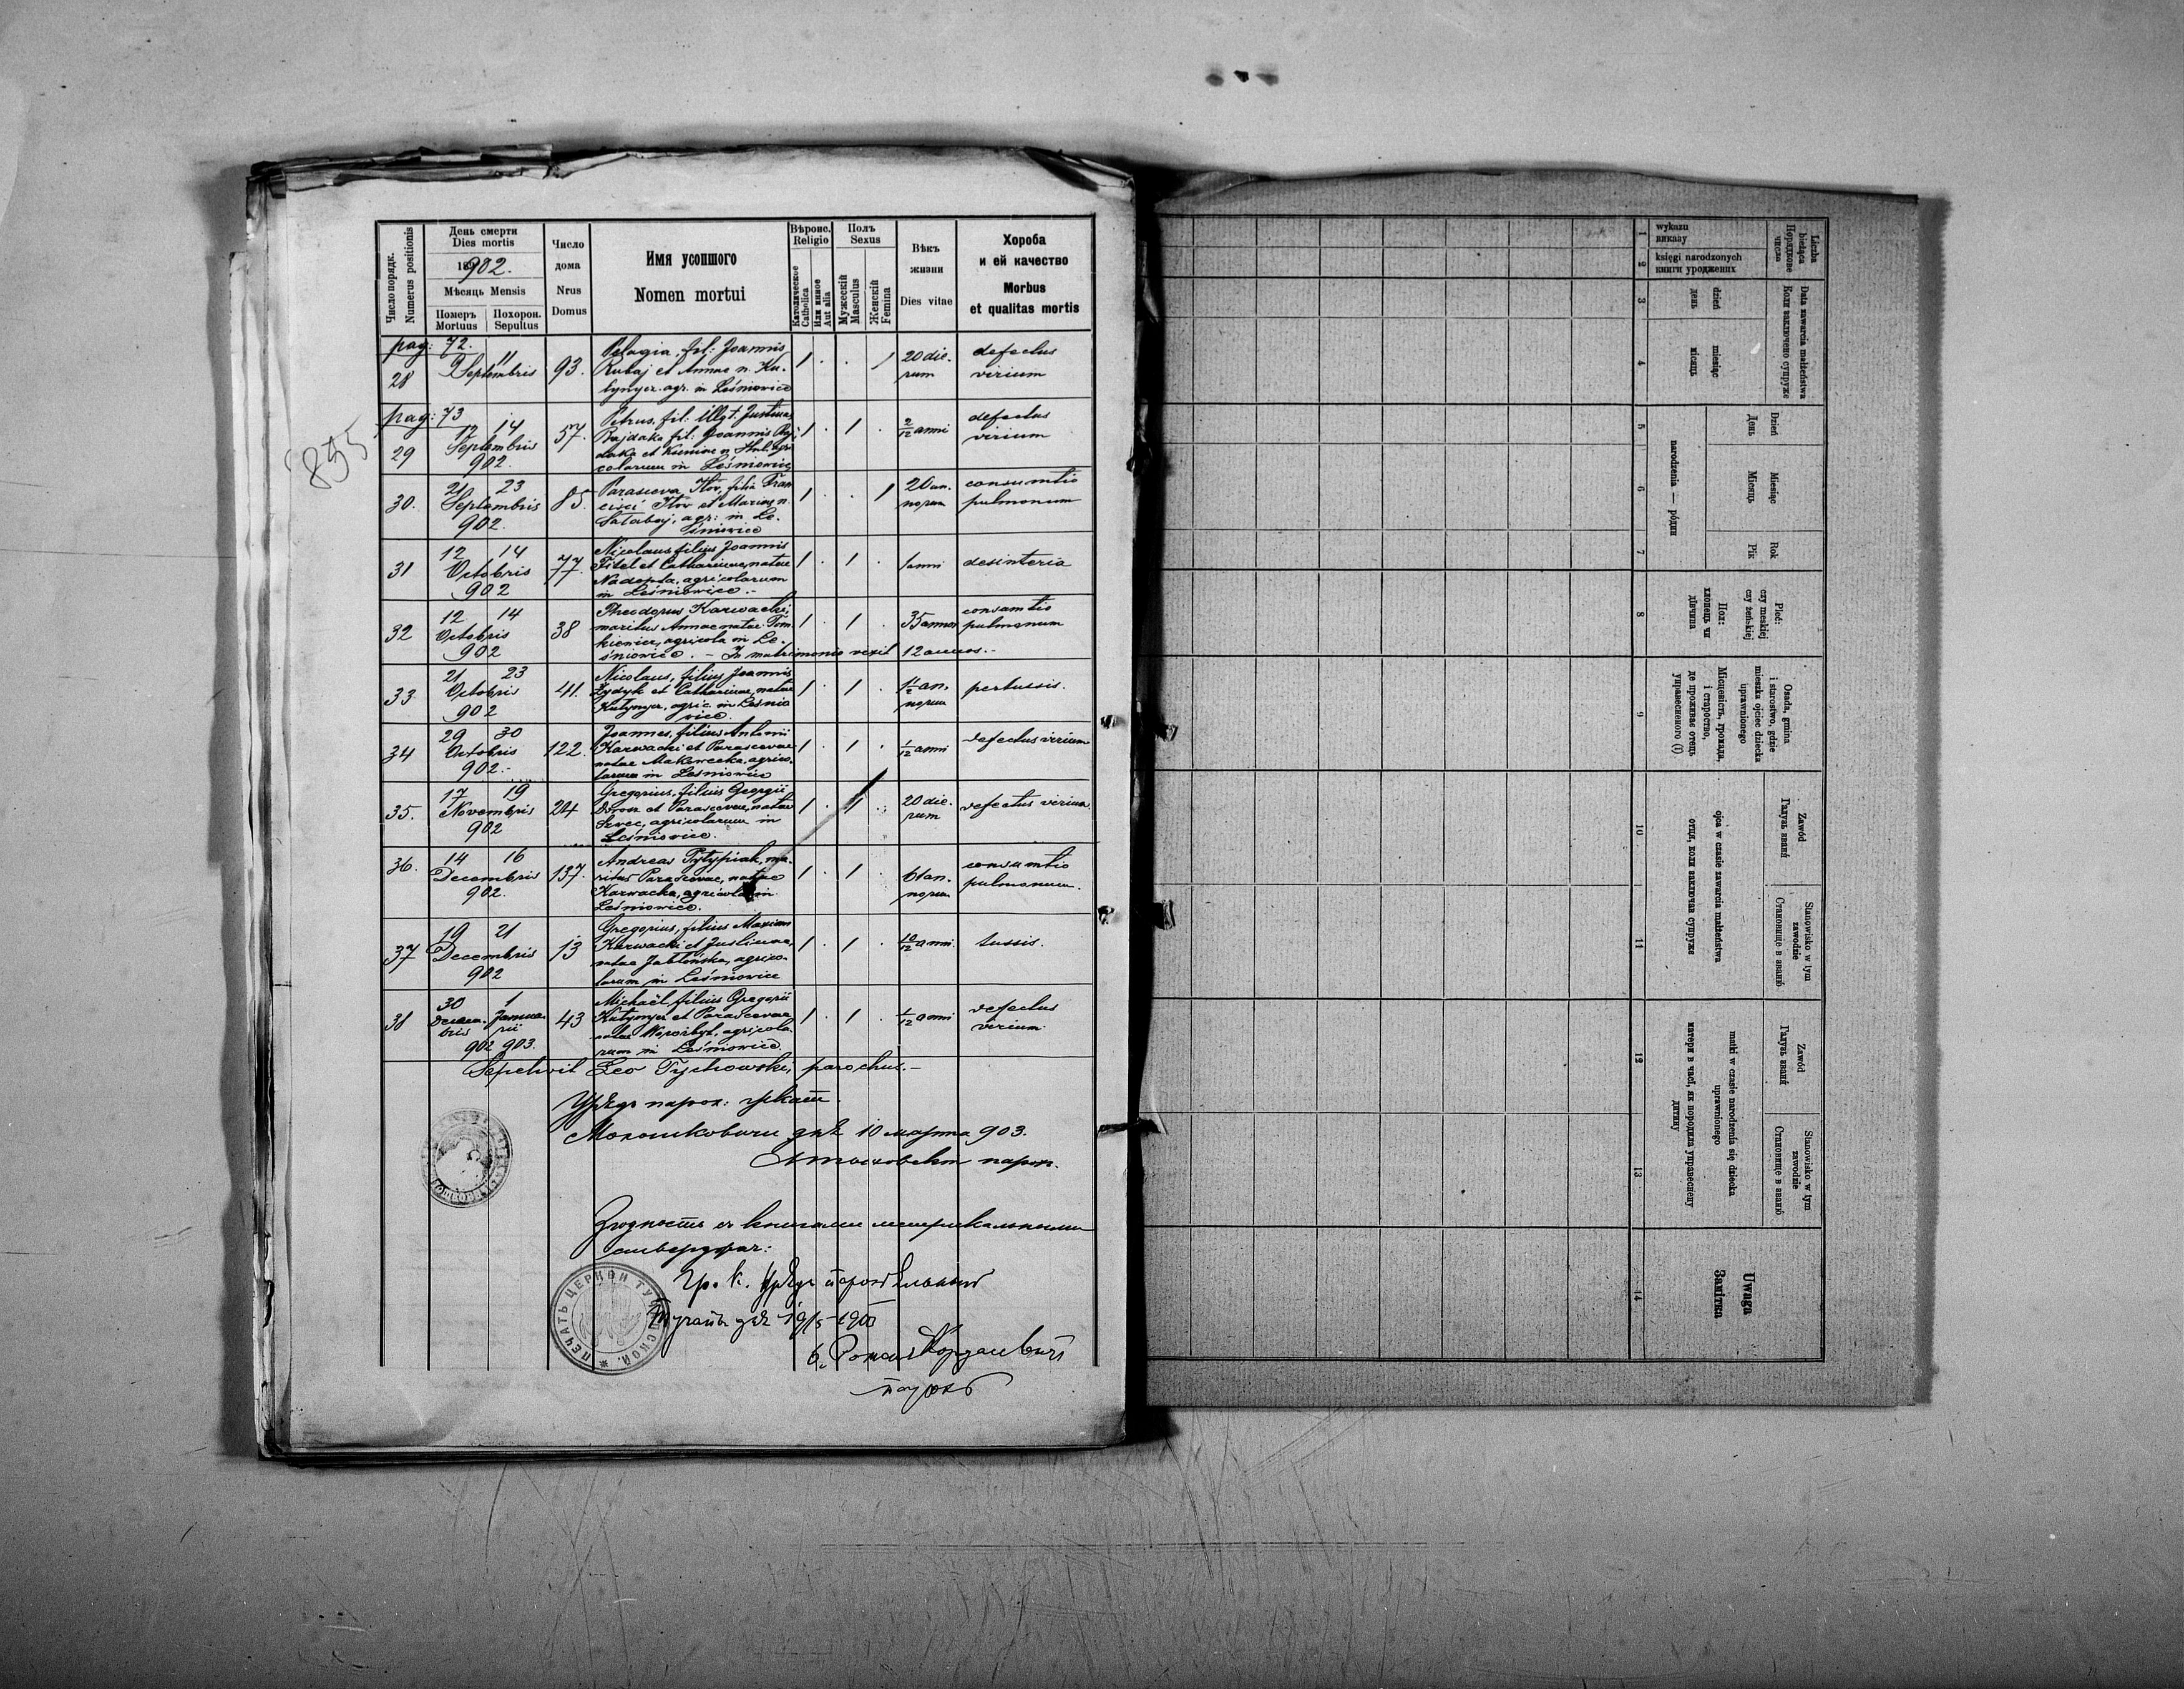 Число порядк.
Numerus positionis
День смерти
Dies mortis
1902.
Мѣсяць Mensis
Померъ
Mortuus
Похорон.
Sepultus
Число
дома
Nrus
Domus
Имя усопшого
Nomen mortui
Вѣроис.
Religio
Католическое
Catholica
Или инное
Aut alia
Полъ
Sexus
Мужескій
Masculus
Женскій
Femina
Вѣкъ
жизни
Dies vitae
Хороба
и ей качество
Morbus
et qualitas mortis
pag: 72.
28
9 11
Septembris
93.
Pelagia, fil: Joannis
Rubaj et Annae n. Ku-
tynycz. agr. in Leśniowice
1 . . 1
20 die-
rum
defectus
virium
pag: 73
29
12 14
Septembris
902.
57.
Petrus, fil: illgt. Justinae
Bajdaka fil: Joannis Baj
daka et
colarum in Leśniowice
1 . 1 .
2/12 anni
defectus
virium
30.
21 23
Septembris
902.
85.
Parasceva Kor, filia Fran
cisci Kor et Mariae n.
Sałabaj, agr: in Le-
śniowice
1 . . 1
20 an-
norum
consumtio
pulmonum
31
12 14
Octobris
902
77.
Nicolaus filius Joannis
Fitel et Catharinae, natae
Nadopta, agricolarum
in Leśniowice.-
1 . 1 .
1 anni
desinteria
32
12 14
Octobris
902
38
Theodorus Karwacki,
maritus Annae natae Tom
kiewicz, agricola in Le-
śniowice. - In matrimonio vixit 12 annos.-
1 . 1 .
35 annor
consumtio
pulmonum
33
21 23
Octobris
902
41.
Nicolaus, filius Joannis
Zydyk et Catharinae, natae
Kutynycz, agric. in Leśnio
wice.
1 . 1 .
1 1/2 an-
norum
pertussis.
34
29 30
Octobris
902.-
122.
Joannes, filius Antonii
Karwacki et Parascevae
natae Makowecka, agrico-
larum in Leśniowice
1 . 1 .
1/12 anni
defectus virium
35.
17 19
Novembris
902
24
Gregorius, filius Georgii
et Parascevae, natae
Szwec, agricolarum in
Leśniowice.
1 . 1 .
20 die-
rum
defectus virium.
36.
14 16
Decembris
902.
137.
Andreas Pytypiak, ma-
ritus Parascevae, natae
Karwacka, agricola in
Leśniowice.
1 . 1 .
61 an-
norum
consumtio
pulmonum.
37
19 21
Decembris
902
13
Gregorius, filius Maximi
Karwacki et Justinae,
natae Jabłońska, agrico-
larum in Leśniowice
1 . 1 .
10/12 anni.
tussis.
38
30 1
Decem- Janua-
bris rii
902 903.
43
Michaël, filius Gregorii
Kutynycz et Parascevae
natae agricola-
rum in Leśniowice
1 . 1 .
1/12 anni
defectus
virium.
Sepelivit Leo Tychowski, parochus.-
Урядъ парох: гр.кат.
днѣ 10 марта 903.
парох.
Згодность съ книгами метрикальными
стверджає:
Гр. к. Урядъ парохіяльный
парох
ПЕЧАТЬ ЦЕРКОВ
895
Liczba
bieżąca
Порядкове
число
1
wykazu
виказу
2
księgi narodzonych
книги уроджених
Data zawarcia małżeństwa
Коли заключено супруже
3
dzień
день
4
miesiąc
місяць
narodzenia — рóдин
5
Dzień
День
6
Miesiąc
Місяць
7
Rok
Рік
8
Płeć:
czy męskiej
czy żeńskiej
Пол:
хлопець чи
дівчина
9
Osada, gmina
i starostwo, gdzie
mieszka ojciec dziecka
uprawnionego
Місцевість, громада,
і староство,
де проживає отець
управненого (ї)
ojca w czasie zawarcia małżeństwa
отця, коли заключав супруже
10
Zawód
Галузь званя
11
Stanowisko w tym
zawodzie
Становище в званю
matki w czasie narodzenia się dziecka
uprawnionego
матери в часі, як породила управнену
дитину
12
Zawód
Галузь званя
13
Stanowisko w tym
zawodzie
Становище в званю
14
Uwaga
Замітка